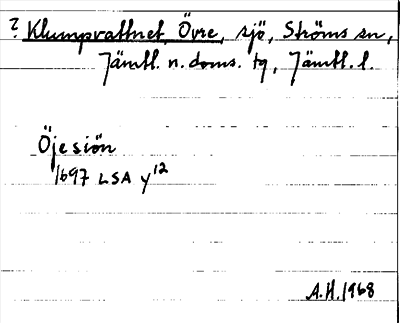 ? Klumpvattnet, Övre, sjö, Ströms sn,
Jämtl. n. doms. tg, Jämtl. l.
Öjesiön
1697 LSA y12
A.H. 1968